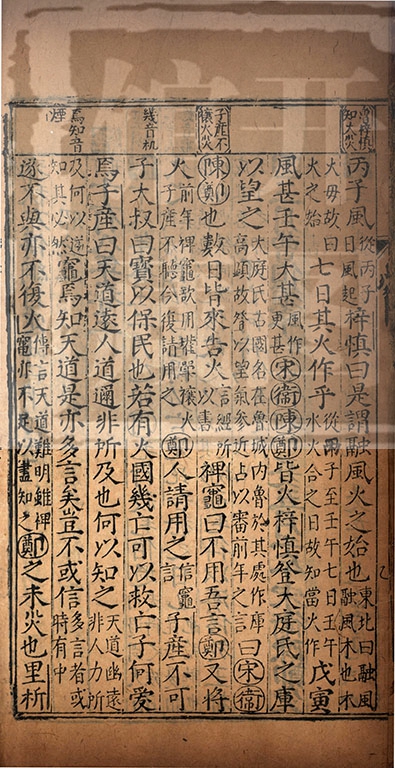 知大火
丙子風從丙子日風起梓慎曰是謂融風火之始也東北曰融風融風木也木
火母故曰火之始七日其火作乎從丙子至壬午七日壬午水火合之日故知當火作戊寅
風甚壬午大甚風作更甚宋衛陳鄭皆火梓慎登大庭氏之庫
以望之大庭氏古國名在魯城內魯於其處作庫高顯故登以望氣參近占以審前年之言曰宋衛
子產不禳火
陳鄭也數日皆來告火言經所以書裨竈曰不用吾言鄭又將
火前年裨竈欲用瓘斝禳火子產不聽今復請用之鄭人請用之信竈言子產不可
幾音机
子大叔曰寳以保民也若有火國幾亡可以救亡子何愛
焉子產曰天道遠人道邇非所及也何以知之天道幽遠非人力所
焉知音煙
及何以逆知其必然竈焉知天道是亦多言矣豈不或信多言者或時有中
遂不與亦不復火傳言天道難明雖裨竈亦不足以盡知之鄭之未災也里析